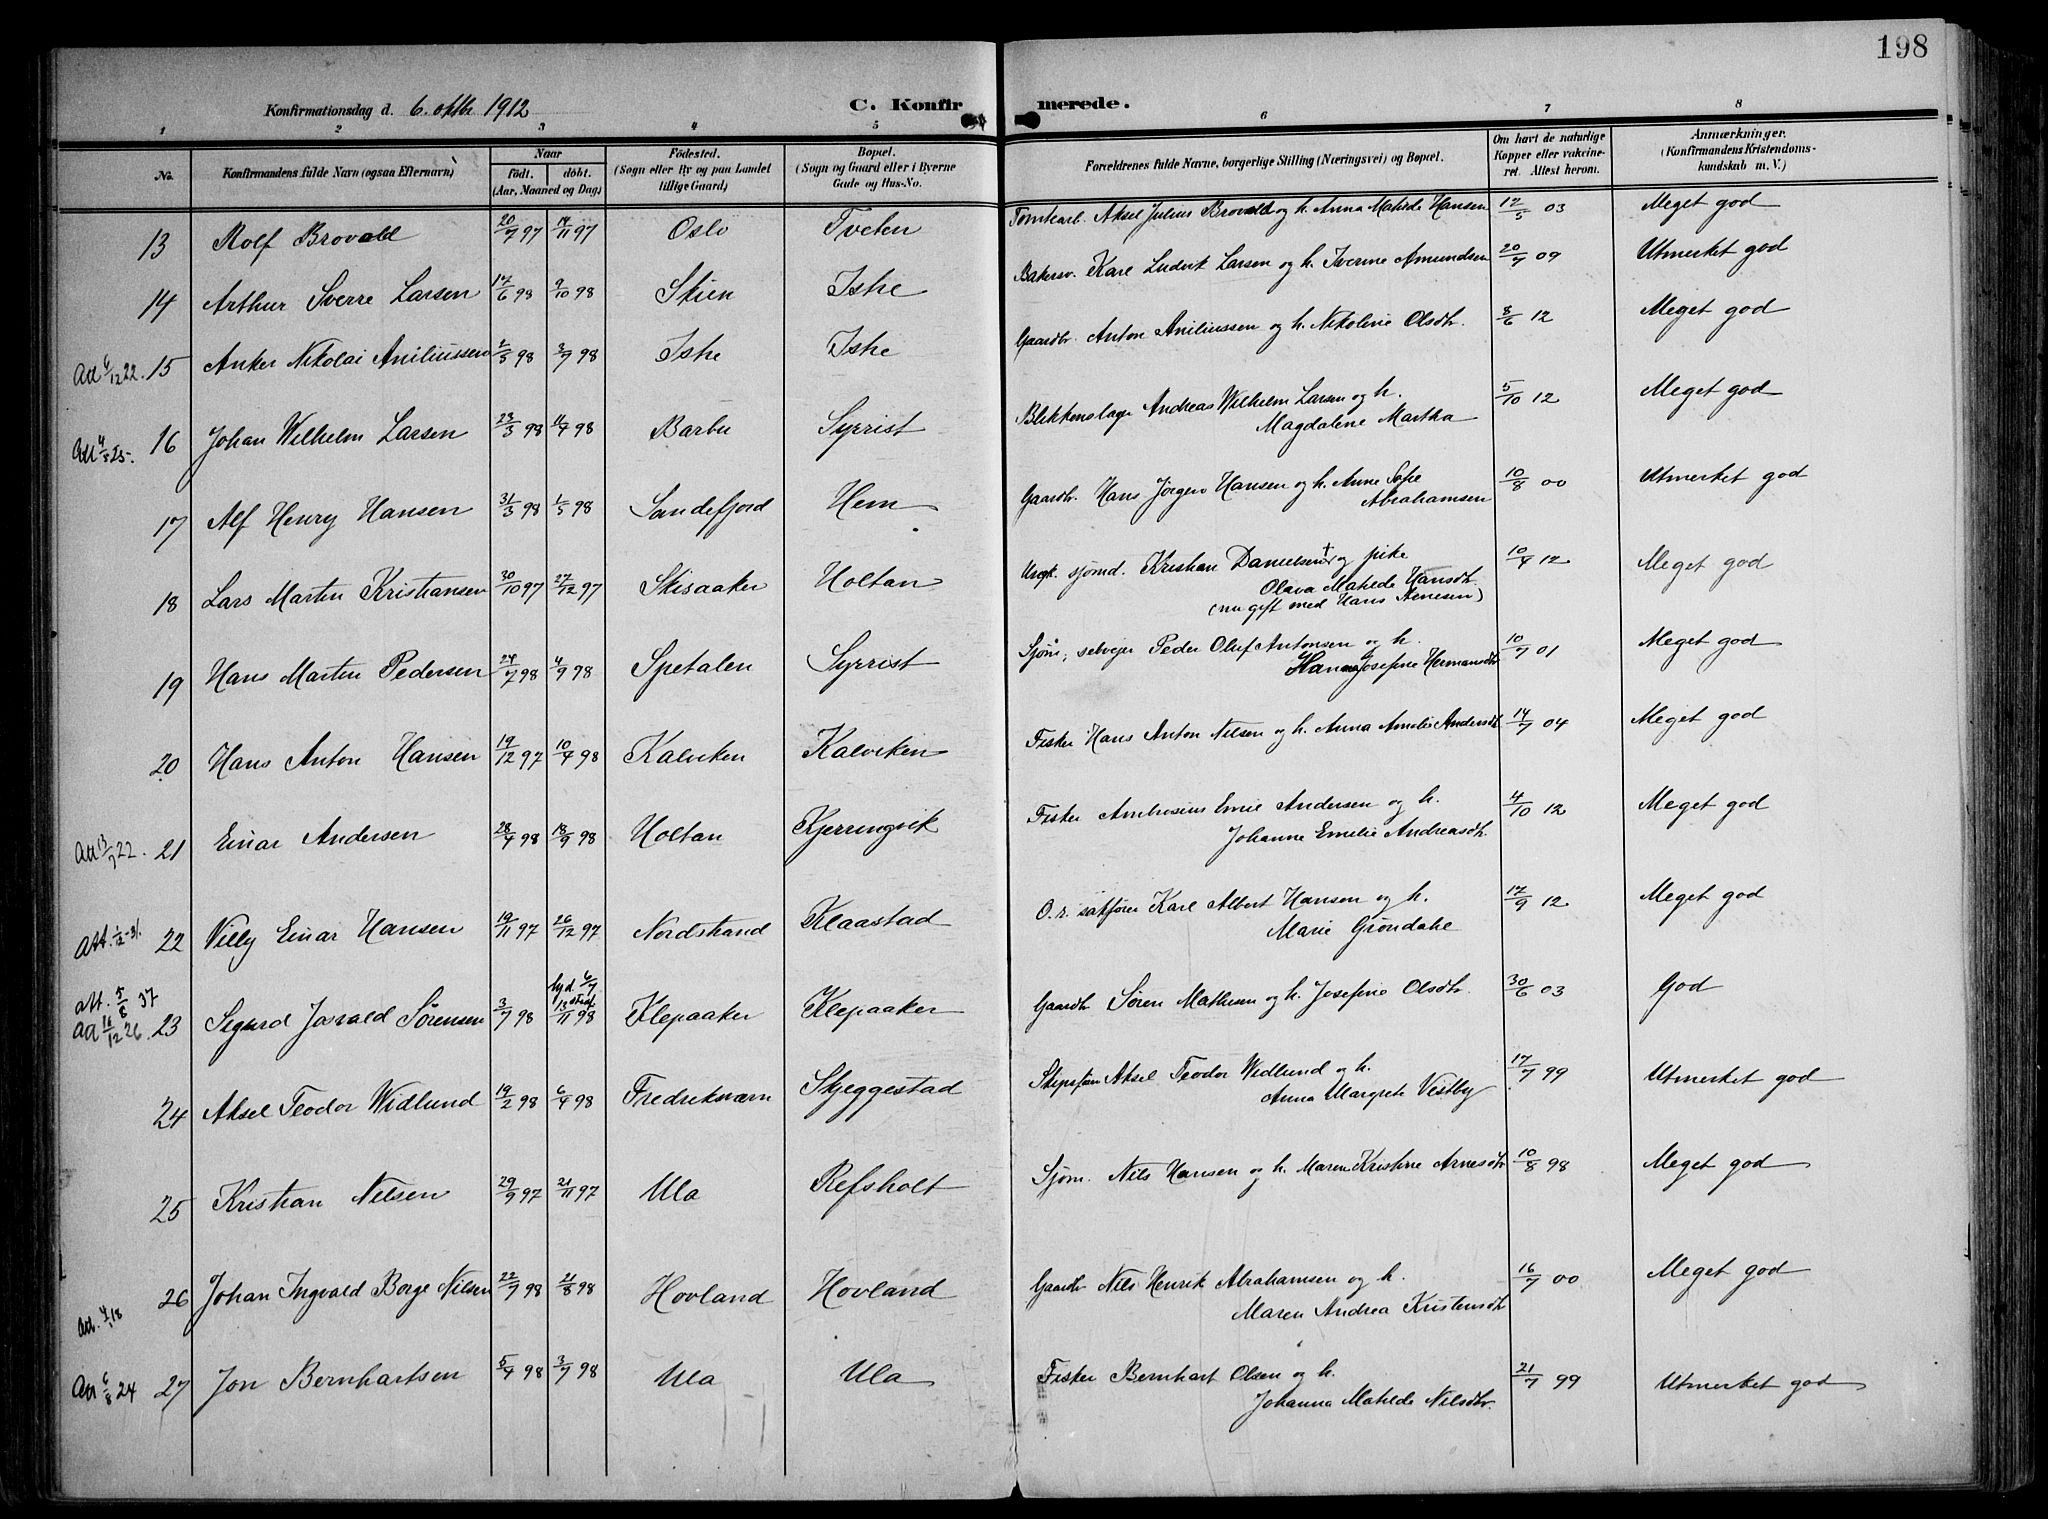 198
Konfirmationsdag d. 6. oktbr 1912 C. Konfirmerede.
1 2 3 4 5 6 7 8
No. Konfirmandens fulde Navn (ogsaa Efternavn) Naar født. døbt. (Aar, Maaned og Dag) Fødested. (Sogn eller By og paa Landet tillige Gaard) Bopæl. (Sogn og Gaard eller i Byerne Gade og Hus-No. Forældrenes fulde Navne, borgerlige Stilling (Næringsvei) og Bopæl. Om havt de naturlige Kopper eller vakcineret. Attest herom. Anmærkninger. (Konfirmandens Kristendomskundskab m. V.)
13 Rolf Brovold 20/7 97 14/11 97 Oslo Tveten Tomtearb. Aksel Julius Brovold og h. Anna Matilde Hansen 12/5 03 Meget god
14 Arthur Sverre Larsen 17/6 98 9/10 98 Skien Istre Bakersv. Karl Ludvik Larsen og h. Iverine Amundsen 20/7 09 Utmerket god
Att 6/12 22. 15 Anker Nikolai Aniliussen 2/3 98 3/7 98 Istre Istre Gaardbr. Anton Aniliussen og h. Nikoline Olsdtr. 8/6 12 Meget god
Att 4/5 25. 16 Johan Wilhelm Larsen 23/3 98 11/4 98 Barbu Syrrist Blikkenslager Andreas Wilhelm Larsen og h.
Magdalene Martha 5/10 12 Meget god
17 Alf Henry Hansen 31/3 98 1/5 98 Sandefjord Hem Gaardbr. Hans Jörgen Hansen og h. Anne Sofie
Abrahamsen 10/8 00 Utmerket god
18 Lars Martin Kristiansen 30/10 97 27/12 97 Skisaaker Holtan Ungk. sjømd. Kristian Danielsen † og pike
Olava Matilde Hansdtr.
(nu gift med Hans Arnesen) 10/7 12 Meget god
19 Hans Martin Pedersen 24/7 98 4/9 98 Spetalen Syrrist Sjøm, selveier Peder Oluf Antonsen og h.
Hanna Josefine Hermansdtr 10/7 01 Meget god
20 Hans Anton Hansen 19/12 97 10/4 98 Kalviken Kalviken Fisker Hans Anton Nilsen og h. Anna Amelie Andersdtr 14/7 04 Meget god
Att 13/9 22. 21 Einar Andersen 28/4 98 18/9 98 Holtan Kjerringvik Fisker Ambrosius Emil Andersen og h.
Johanne Emelie Andreasdtr. 4/10 12 Meget god
Att. 1/12-31. 22 Villy Einar Hansen 19/11 97 26/12 97 Nordstrand Klaastad O.r. sakfører Karl Albert Hansen og h.
Marie Gröndahl 17/9 12 Meget god
att. 5/8 37
Att 16/12 26. 23 Sigurd Josvald Sörensen 3/7 98 hjd. 6/7 13/11 98 Klepaaker Klepaaker Gaardbr Sören Mathisen og h. Josefine Olsdtr. 30/6 03 God
24 Aksel Teodor Widlund 19/2 98 6/4 98 Fredriksværn Skjeggestad Skipsfører Aksel Teodor Widlund og h.
Anna Margrete Vestby 17/7 99 Utmerket god
25 Kristian Nilsen 29/9 97 21/11 97 Ula Refsholt Sjøm. Nils Hansen og h. Maren Kristine Arnesdtr 10/8 98 Meget god
Att. 4/1 18 26 Johan Ingvald Borge Nilsen 22/7 98 21/8 98 Hovland Hovland Gaardbr Nils Henrik Abrahamsen og h.
Maren Andrea Kristensdtr 16/7 00 Meget god
Att 6/8 24 27 Jon Bernhartsen 5/4 98 3/7 98 Ula Ula Fisker Bernhart Olsen og h.
Johanna Matilde Nilsdtr. 21/7 99 Utmerket god